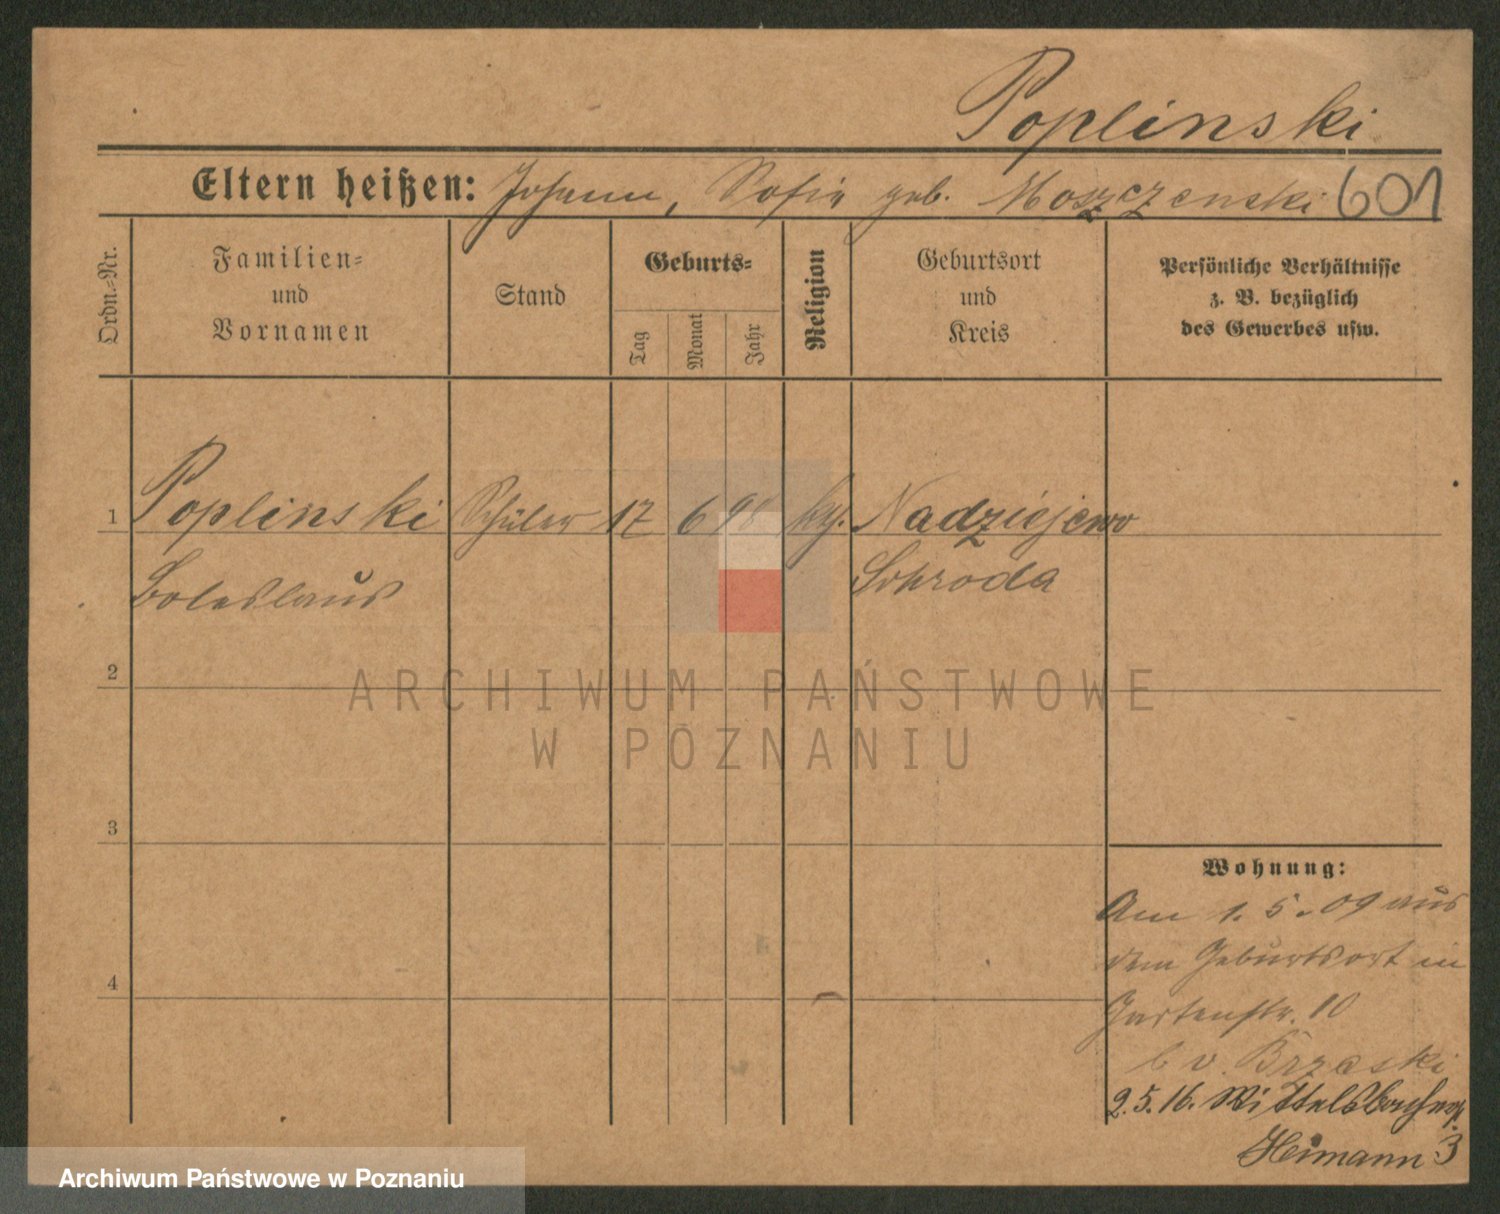 Poplinski
Eltern heißen: Johann, Sofie geb. Moszczenski 601
Ordn.-Nr.
Familien-
und
Vornamen
Stand
Geburts-
Tag
Monat
Jahr
Religion
Geburtsort
und
Kreis
Persönliche Verhältnisse
z. B. bezüglich
des Gewerbes usw.
1 Poplinski Schüler 17 6 98 kth. Nadziejewo
Boleslaus Schroda
2
ARCHIWUM PAŃSTWOWE
W POZNANIU
3
Wohnung:
Am 1. 5. 09 aus
dem Geburtsort in
4
Gartenstr. 10
b v. Brzeski
2.5.16. Wittelsbacherstr.
Heimann 3
Archiwum Państwowe w Poznaniu